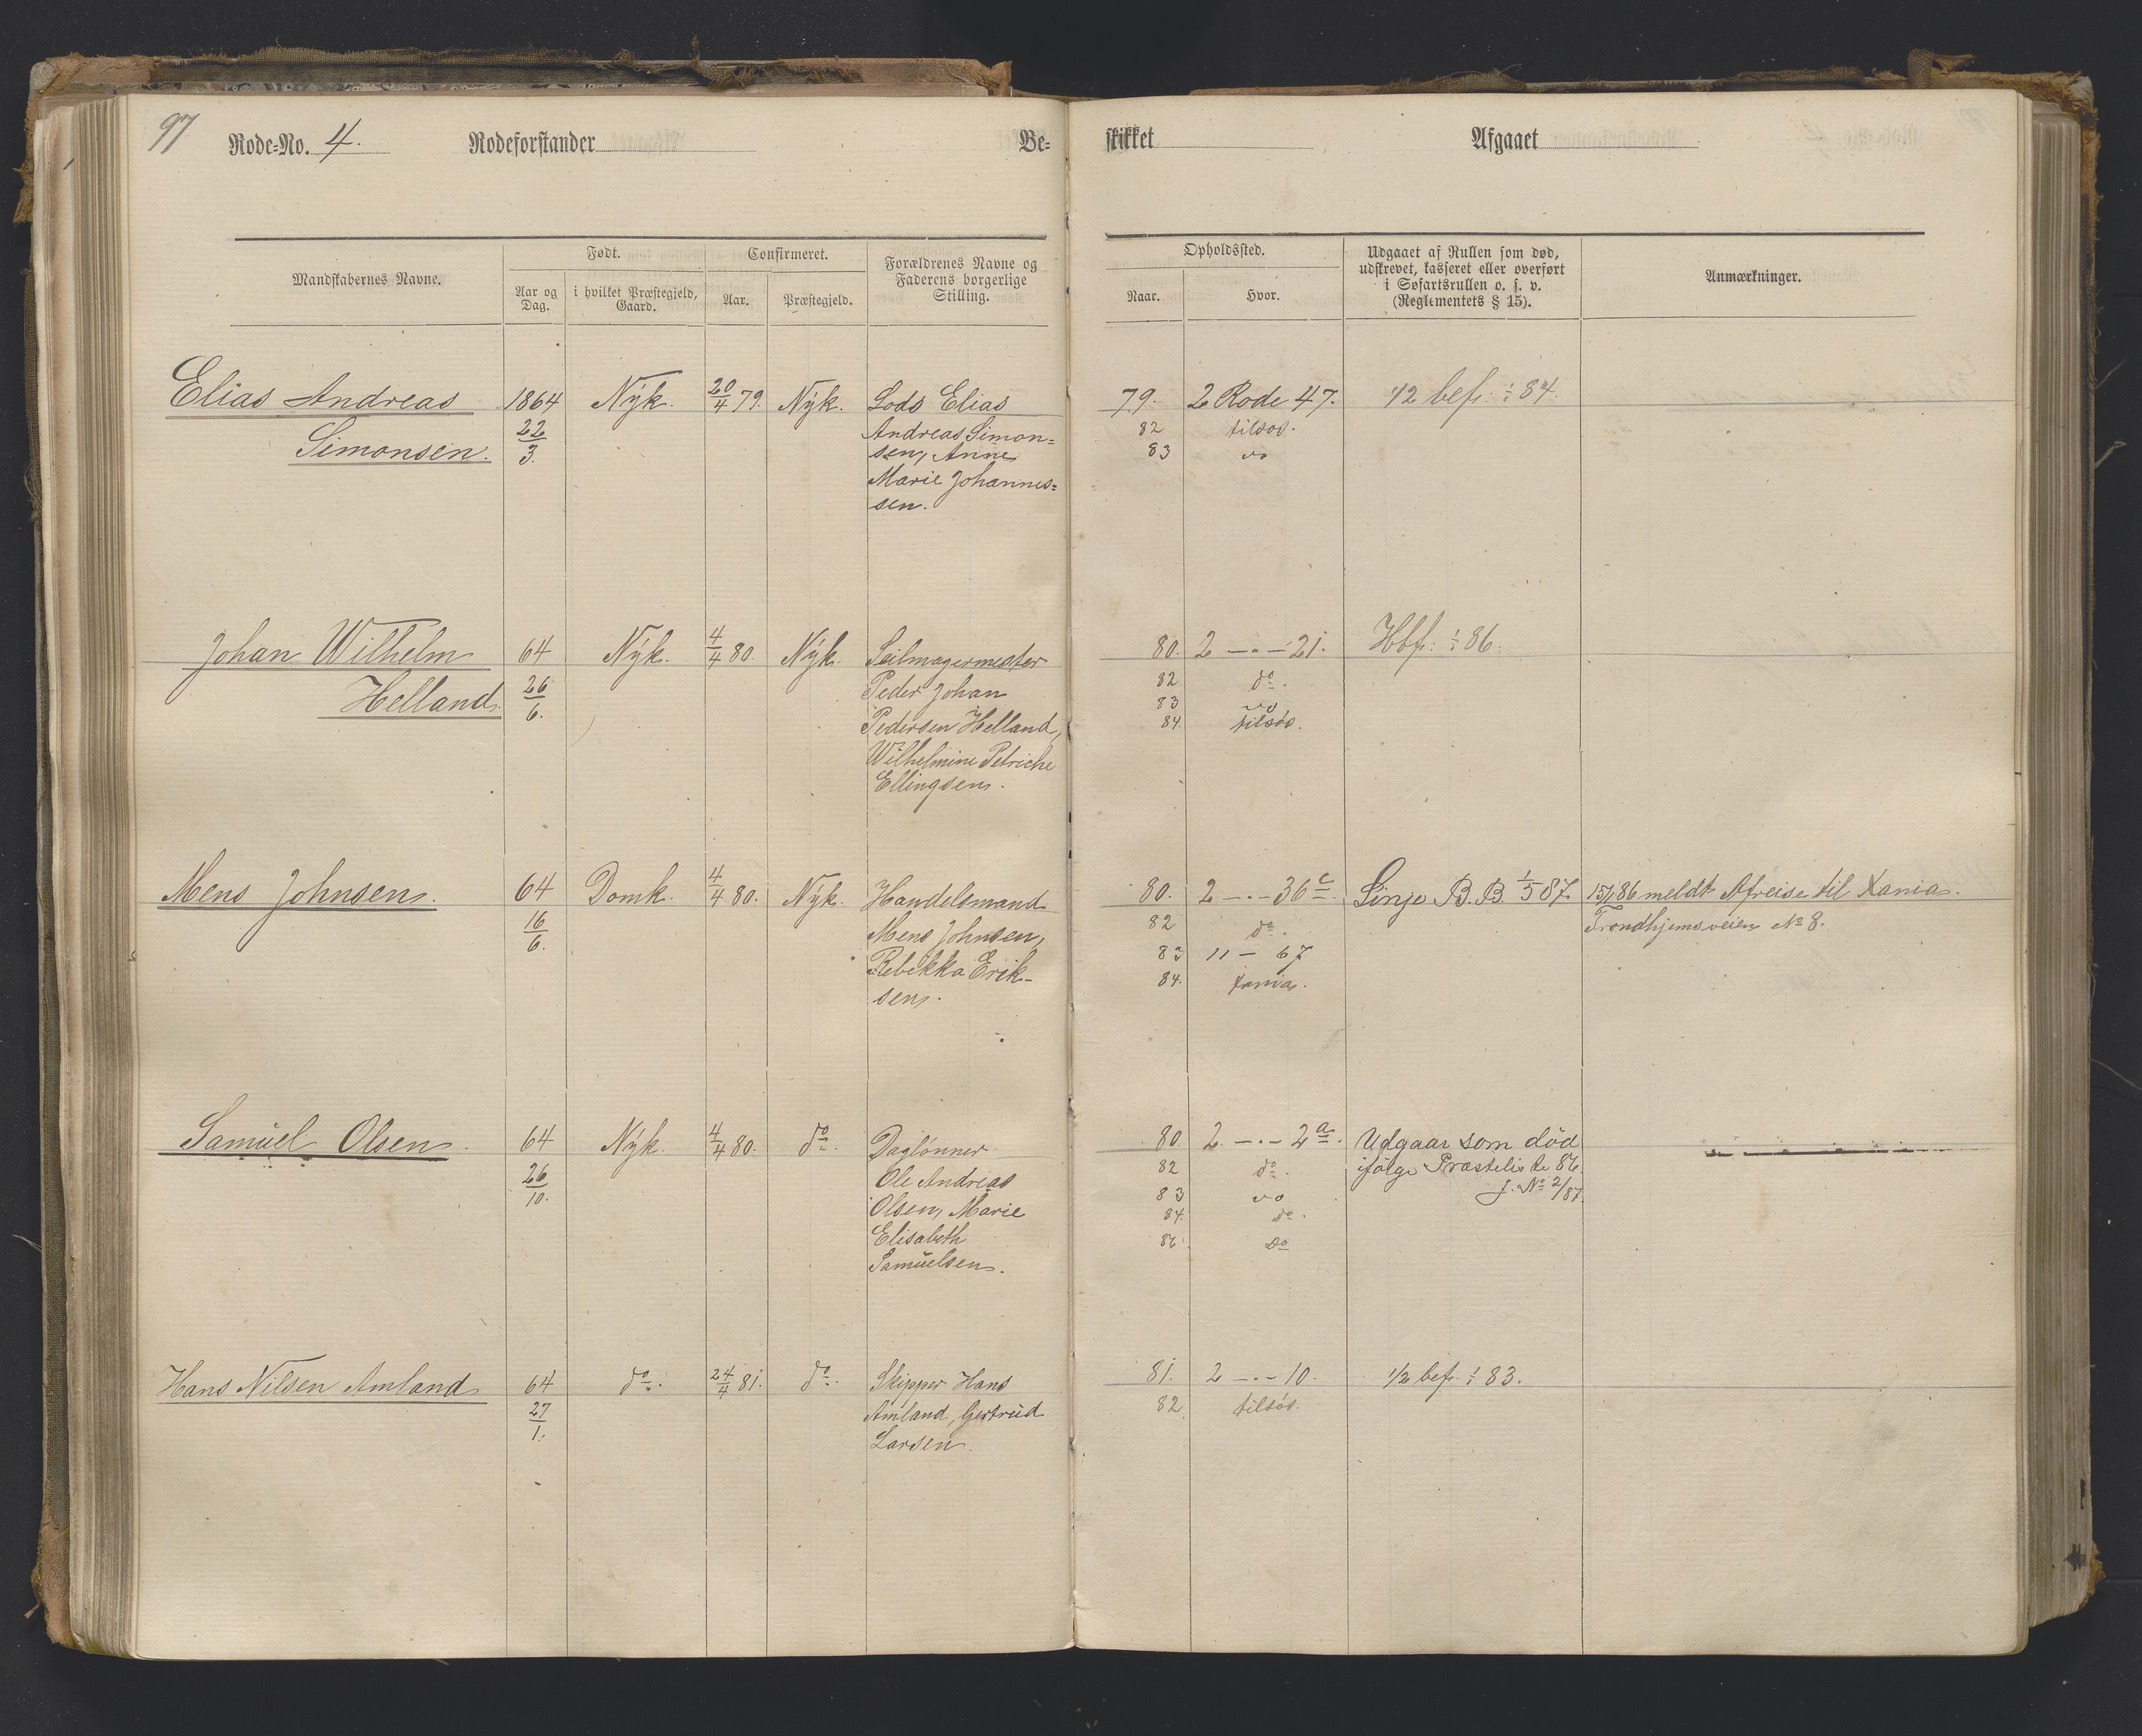 97
Rode-No. 4. Rodeforstander Be-
skikket Afgaaet
Mandskabernes Navne. Født. Confirmeret. Forældrenes Navne og Faderens borgerlige Stilling.
Aar og Dag. i hvilket Præstegjeld, Gaard. Aar. Præstegjeld.
Opholdssted. Udgaaet af Rullen som død, udskrevet, kasseret eller overført i Søfartsrullen o. s. v. (Reglementets § 15). Anmærkninger.
Naar. Hvor.
Elias Andreas 1864 Nyk. 20/4 79. Nyk. Lods Elias 79. 2 Rode 47. 1/2 bef. ÷ 84.
Simonsen. 22/3. Andreas Simon= 82 tilsøs.
sen, Anne 83 do
Marie Johannes=
sen.
Johan Wilhelm 64 Nyk. 4/4 80. Nyk. Seilmagermester 80. 2 —„— 21. Hbf. ÷ 86.
Helland. 26/6. Peder Johan 82 do.
83 do
Pedersen Helland, 84. tilsøs.
Wilhelmine Petriche
Ellingsen.
Mens Johnsen. 64 Domk. 4/4 80. Nyk. Handelsmand 80. 2 —„— 36 c. Linje B. B. 1/5 87. 15/7 86 meldt Afreise til Xania.
16/6. Mens Johnsen, 82 do. Trondhjemsveien No 8.
Rebekka Erik- 83 11 — 67
sen. 84. Xania.
Samuel Olsen. 64 Nyk. 4/4 80. do. Daglønner 80. 2 —„— 2 a. Udgaar som død
26/10. Ole Andreas 82 do. ifølge Præsteliste 86.
Olsen, Marie 83 do J. No 2/87.
Elisabeth 84. do.
Samuelsen. 86 do
Hans Nilsen Amland 64 do. 24/4 81. do. Skipper Hans 81. 2 —„— 10. 1/2 bef. ÷ 83.
27/1. Amland, Gertrud 82 tilsøs.
Larsen.